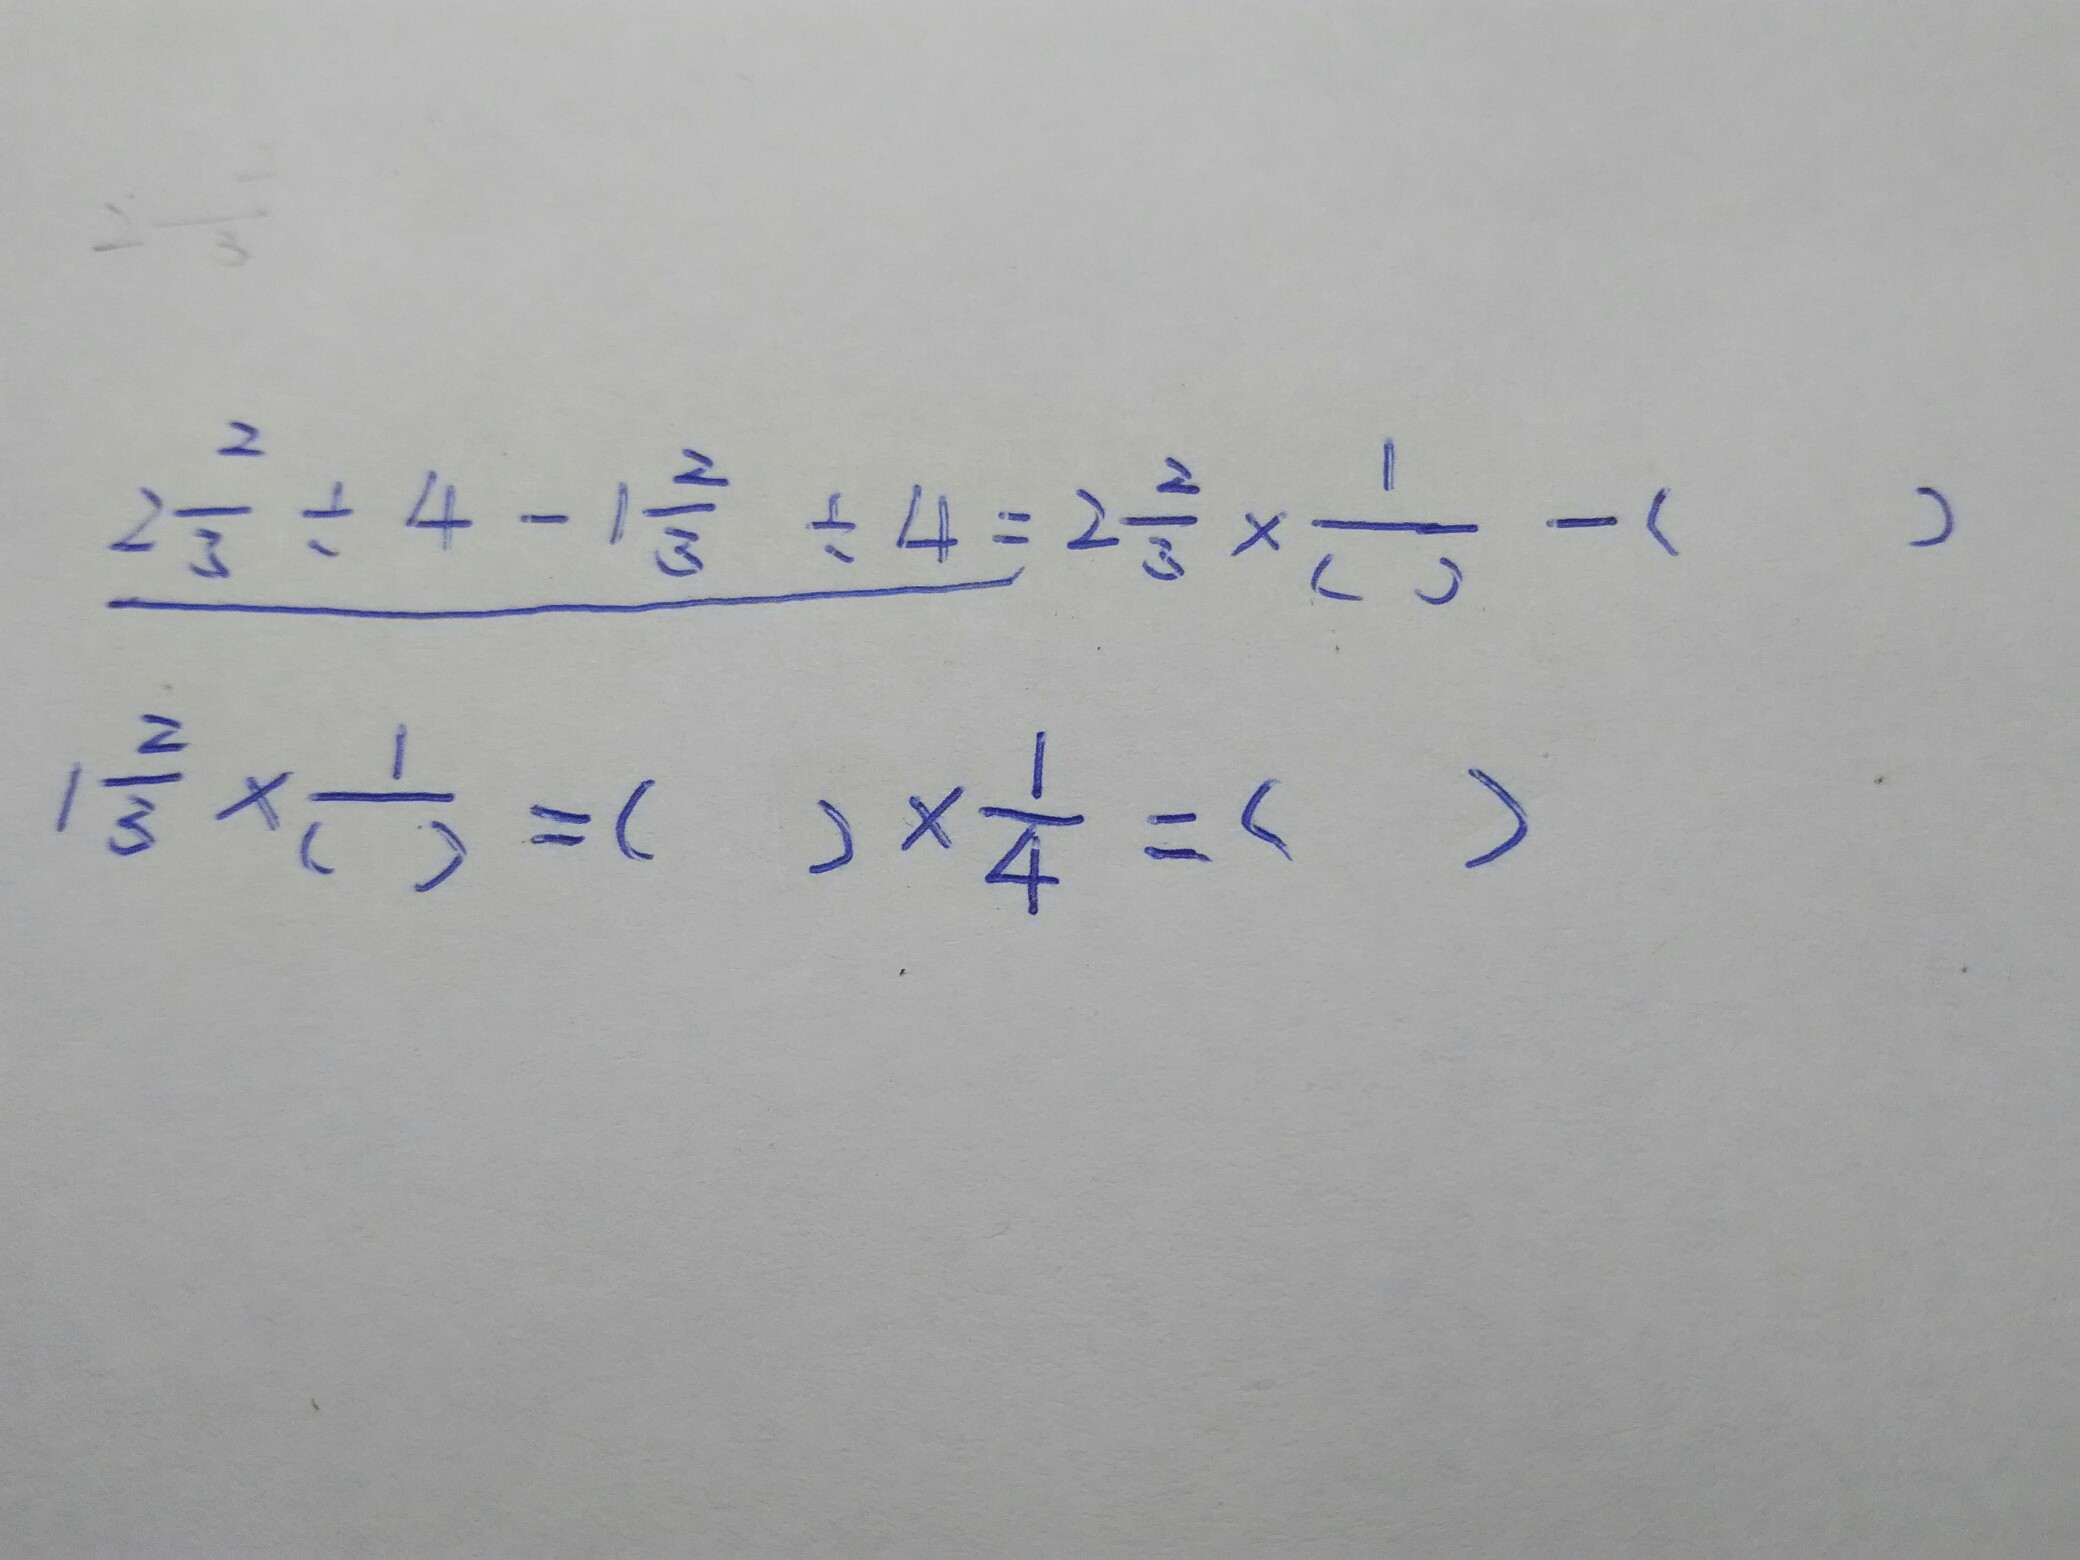 2 2/3 ÷ 4 - 1 2/3 ÷ 4 = 2 2/3 × 1/( ) - ( )
1 2/3 × 1/( ) = ( ) × 1/4 = ( )